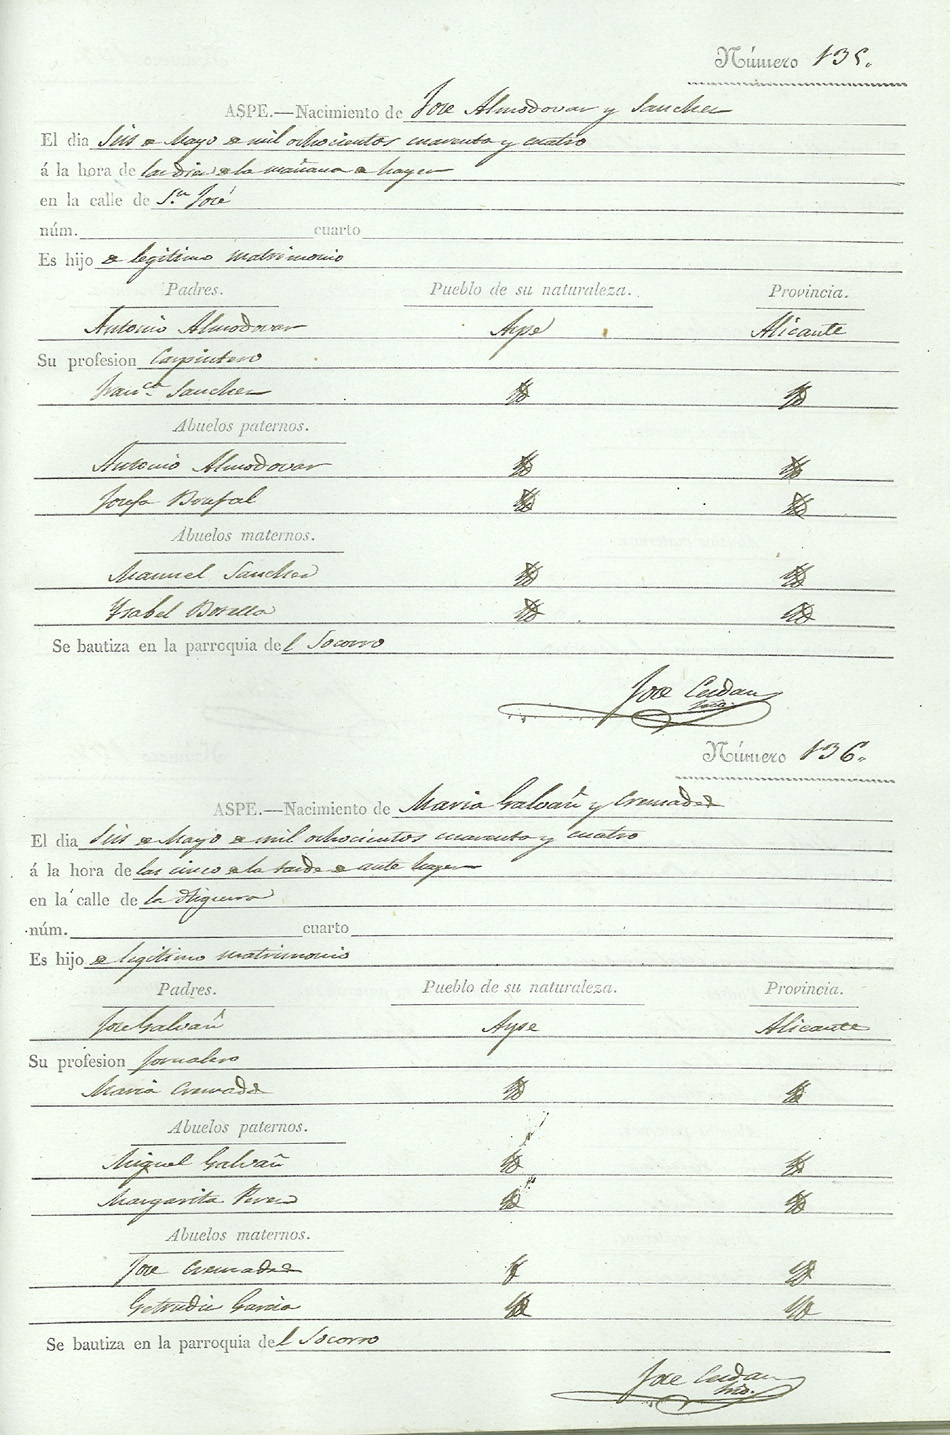 Número 135.
ASPE.—Nacimiento de Jose Almodovar y Sanchez
El dia Seis de Mayo de mil ochocientos cuarenta y cuatro
á la hora de las diez de la mañana de hayer
en la calle de Sn José
núm. cuarto
Es hijo de legitimo matrimonio
Padres. Pueblo de su naturaleza. Provincia.
Antonio Almodovar Aspe Alicante
Su profesion Carpintero
Franca Sanchez
Abuelos paternos.
Antonio Almodovar
Josefa
Abuelos maternos.
Manuel Sanchez
Ysabel Botella
Se bautiza en la parroquia del Socorro
Jose Cerdan
Número 136.
ASPE.—Nacimiento de Maria Galvañ y Cremades
El dia Seis de Mayo de mil ochocientos cuarenta y cuatro
á la hora de las cinco de la tarde de ante hayer
en la calle de la Higuera
núm. cuarto
Es hijo de legitimo matrimonio
Padres. Pueblo de su naturaleza. Provincia.
Jose Galvañ Aspe Alicante
Su profesion Jornalero
Maria Cremades
Abuelos paternos.
Miguel Galvañ
Margarita Perez
Abuelos maternos.
Jose Cremades
Getrudis Garcia
Se bautiza en la parroquia del Socorro
Jose Cerdan